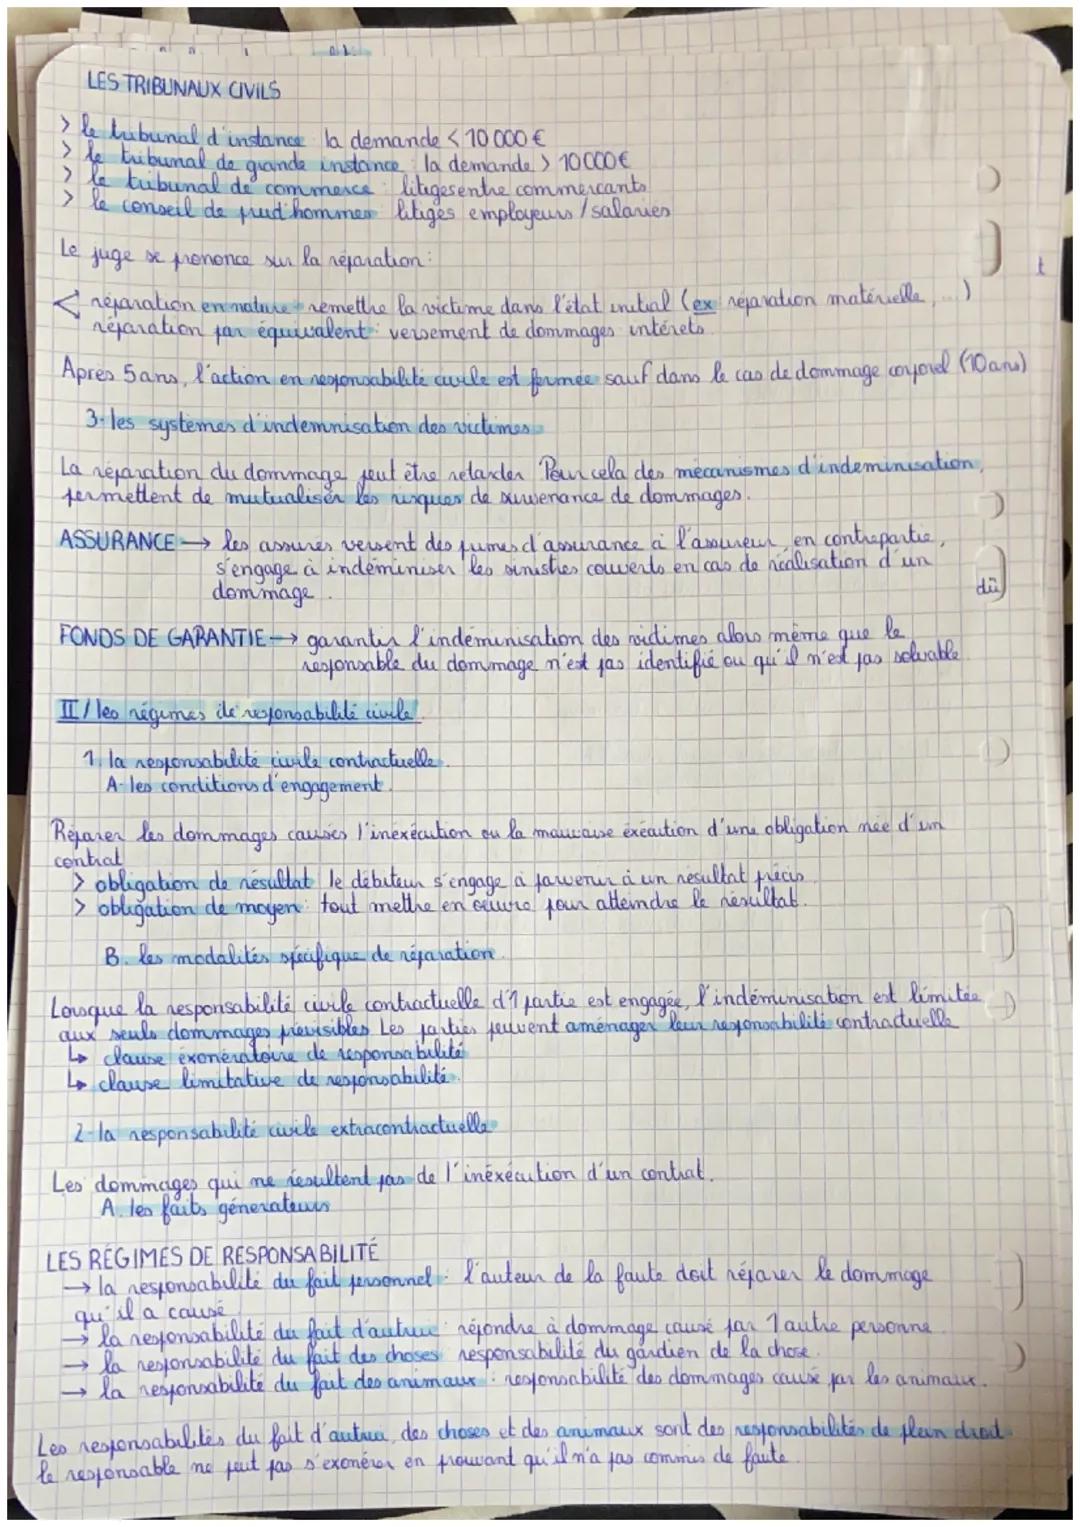 LES TRIBUNAUX CIVILS
> le tribunal d'instance la demande < 10 000 €
> le tribunal de grande instance : la demande > 10 000 €
> le tribunal de commerce : litiges entre commercants
> le conseil de prud'hommes litiges employeurs / salariés
Le juge se prononce sur la réparation :
< réparation en nature : remettre la victime dans l'état initial (ex réparation matérielle, ...)
réparation par équivalent : versement de dommages intérets
Après 5 ans, l'action en responsabilité civile est fermée sauf dans le cas de dommage corporel (10 ans)
3- les systèmes d'indemnisation des victimes
La réparation du dommage peut être retarder Pour cela des mécanismes d'indeminisation,
permettent de mutualiser les risques de survenance de dommages.
ASSURANCE → les assurés versent des primes d'assurance à l'assureur, en contrepartie,
s'engage à indéminiser les sinistres couverts en cas de réalisation d'un
dommage.
dû
FONDS DE GARANTIE → garantir l'indéminisation des victimes alors même que le
responsable du dommage n'est pas identifié ou qu'il n'est pas solvable.
II / les régimes de responsabilité civile
1. la responsabilité civile contractuelle.
A- les conditions d'engagement.
Réparer les dommages causés l'inéxécution ou la mauvaise éxécution d'une obligation née d'un
contrat
> obligation de résultat le débiteur s'engage à parvenir à un résultat précis.
> obligation de moyen : tout mettre en œuvre pour atteindre le résultat.
B. les modalités spécifique de réparation.
Lorsque la responsabilité civile contractuelle d'1 partie est engagée, l'indéminisation est limitée
aux seuls dommages prévisibles. Les parties peuvent aménager leur responsabilité contractuelle
↳ clause exonératoire de responsabilité
↳ clause limitative de responsabilité.
2- la responsabilité civile extracontractuelle
Les dommages qui ne résultent pas de l'inéxécution d'un contrat.
A. les faits générateurs
LES RÉGIMES DE RESPONSABILITÉ
→ la responsabilité du fait personnel : l'auteur de la faute doit réparer le dommage
qu'il a causé
→ la responsabilité du fait d'autrui répondre à dommage causé par 1 autre personne
→ la responsabilité du fait des choses responsabilité du gardien de la chose.
→ la responsabilité du fait des animaux : responsabilité des dommages causé par les animaux.
Les responsabilités du fait d'autrui, des choses et des animaux sont des responsabilités de plein droit
le responsable ne peut pas s'exonérer en prouvant qu'il n'a pas commis de faute.